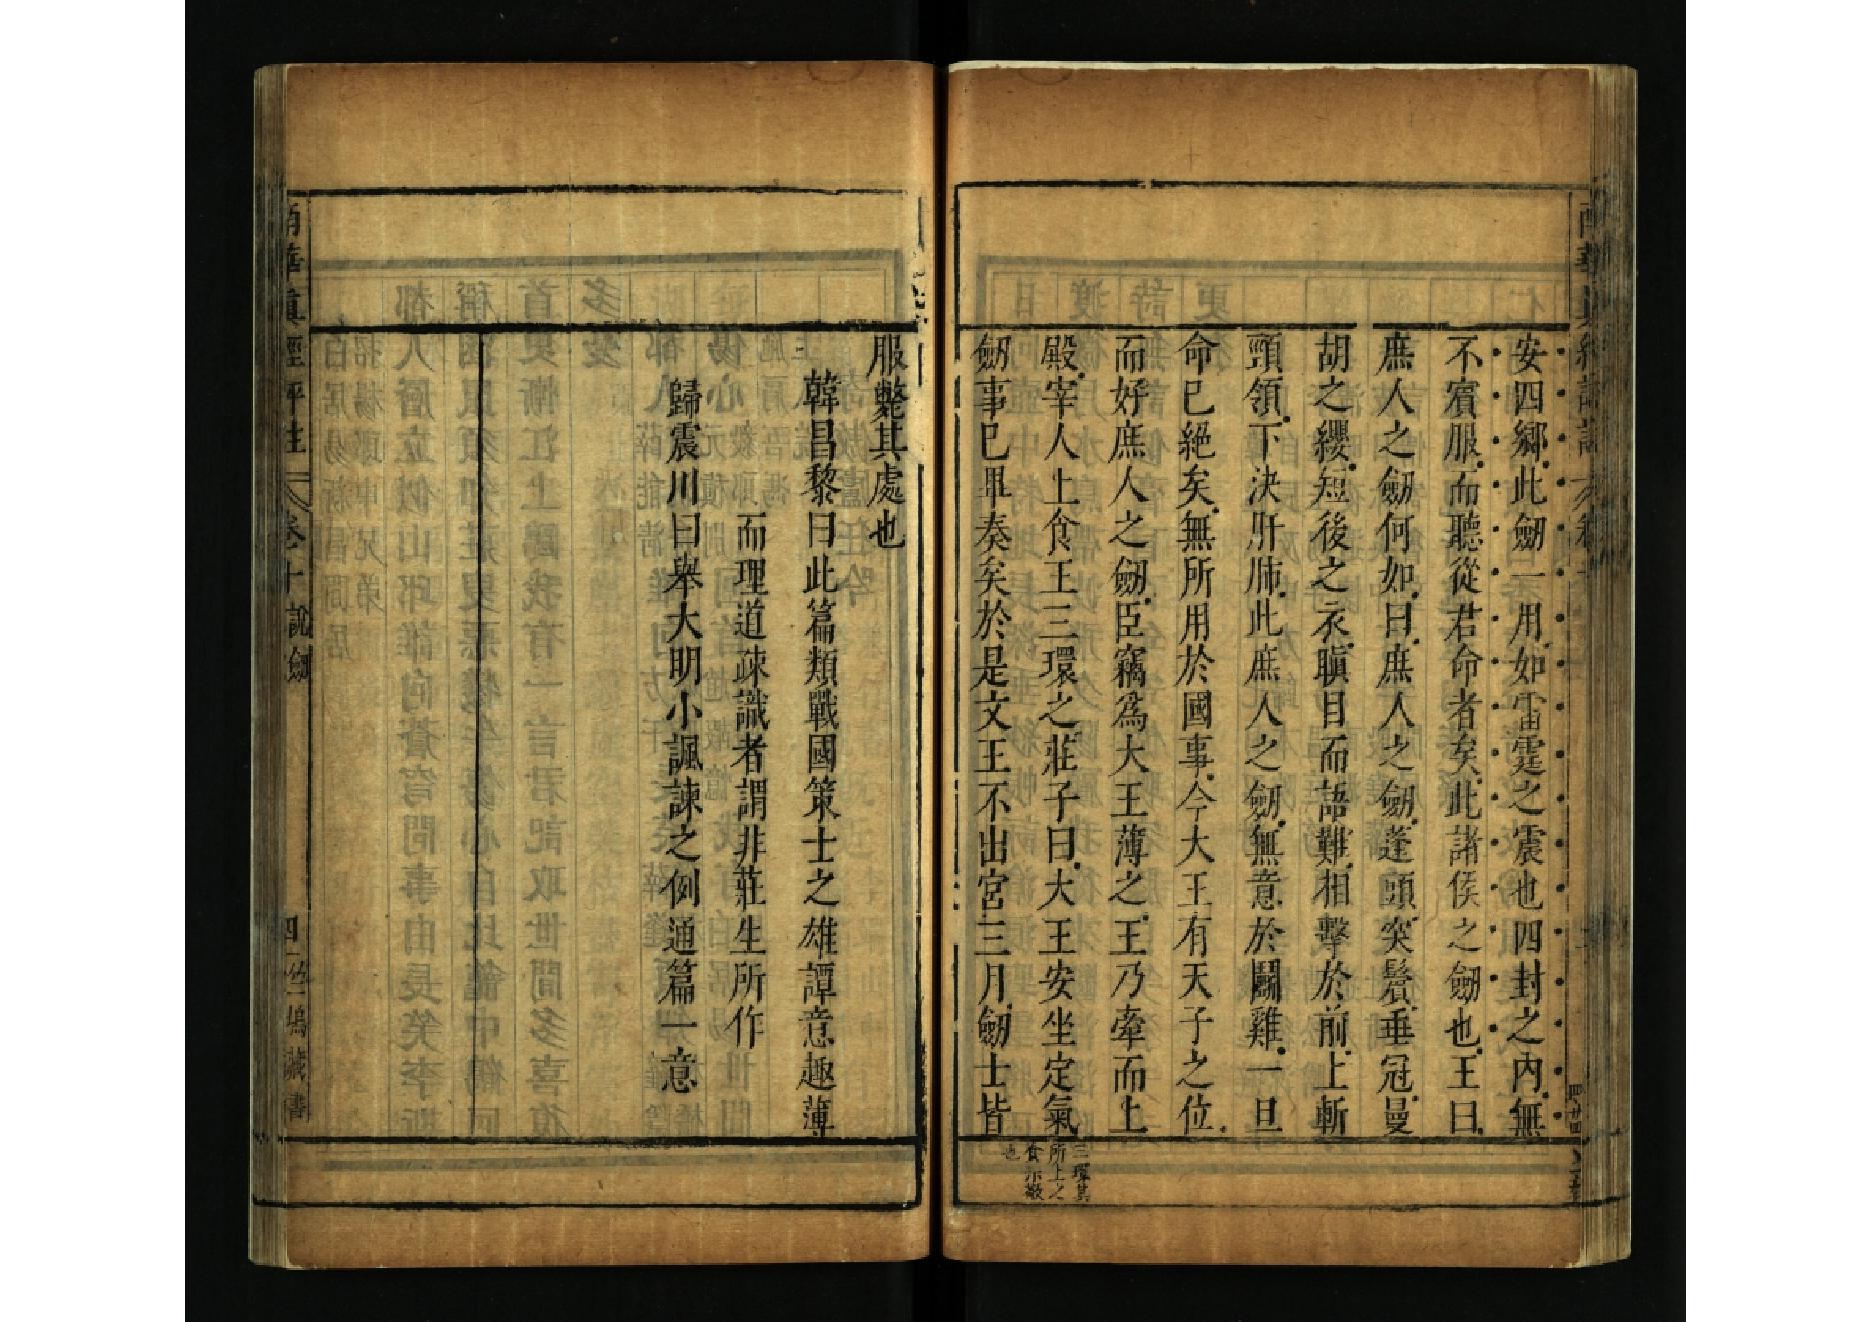 安四鄉此劒一用如雷霆之震也四封之內無
不賔服而聽從君命者矣此諸侯之劒也王曰
庶人之劒何如曰庶人之劒蓬頭突鬢垂冠曼
胡之纓短後之衣瞋目而語難相擊於前上斬
頸領下決肝肺此庶人之劒無意於鬭雞一旦
命已絕矣無所用於國事今大王有天子之位
而好庶人之劒臣竊爲大王薄之王乃牽而上
殿宰人上食王三環之莊子曰大王安坐定氣
劒事已畢奏矣於是文王不出宮三月劒士皆
三環其
所上之
食示敬
也
服斃其處也
韓昌黎曰此篇類戰國策士之雄譚意趣薄
而理道疎識者謂非莊生所作
歸震川曰舉大明小諷諫之例通篇一意
南華眞經評註 卷十 說劒 四 竺塢藏書